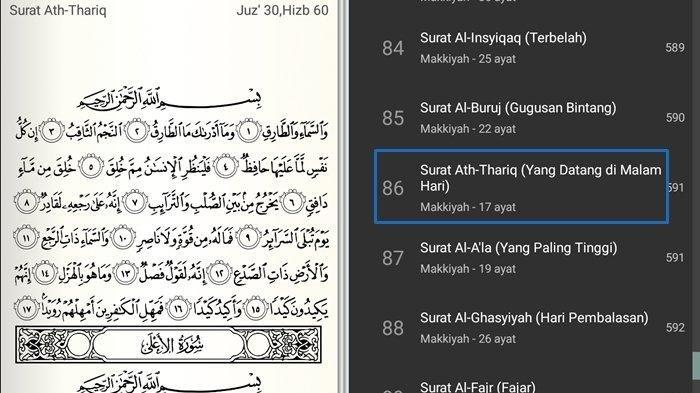 Surat Ath-Thariq
Juz' 30,Hizb 60
بِسْمِ اللَّهِ الرَّحْمَٰنِ الرَّحِيمِ
وَالسَّمَاءِ وَالطَّارِقِ ١ وَمَا أَدْرَاكَ مَا الطَّارِقُ ٢ النَّجْمُ الثَّاقِبُ ٣ إِن كُلُّ
نَفْسٍ لَّمَّا عَلَيْهَا حَافِظٌ ٤ فَلْيَنظُرِ الْإِنسَانُ مِمَّ خُلِقَ ٥ خُلِقَ مِن مَّاءٍ
دَافِقٍ ٦ يَخْرُجُ مِن بَيْنِ الصُّلْبِ وَالتَّرَائِبِ ٧ إِنَّهُ عَلَىٰ رَجْعِهِ لَقَادِرٌ ٨
يَوْمَ تُبْلَى السَّرَائِرُ ٩ فَمَا لَهُ مِن قُوَّةٍ وَلَا نَاصِرٍ ١٠ وَالسَّمَاءِ ذَاتِ الرَّجْعِ ١١
وَالْأَرْضِ ذَاتِ الصَّدْعِ ١٢ إِنَّهُ لَقَوْلٌ فَصْلٌ ١٣ وَمَا هُوَ بِالْهَزْلِ ١٤ إِنَّهُمْ
يَكِيدُونَ كَيْدًا ١٥ وَأَكِيدُ كَيْدًا ١٦ فَمَهِّلِ الْكَافِرِينَ أَمْهِلْهُمْ رُوَيْدًا ١٧
سُورَةُ الْأَعْلَىٰ
بِسْمِ اللَّهِ الرَّحْمَٰنِ الرَّحِيمِ
84 Surat Al-Insyiqaq (Terbelah) 589
Makkiyah - 25 ayat
85 Surat Al-Buruj (Gugusan Bintang) 590
Makkiyah - 22 ayat
86 Surat Ath-Thariq (Yang Datang di Malam
Hari) 591
Makkiyah - 17 ayat
87 Surat Al-A'la (Yang Paling Tinggi) 591
Makkiyah - 19 ayat
88 Surat Al-Ghasyiyah (Hari Pembalasan) 592
Makkiyah - 26 ayat
Surat Al-Fajr (Fajar)